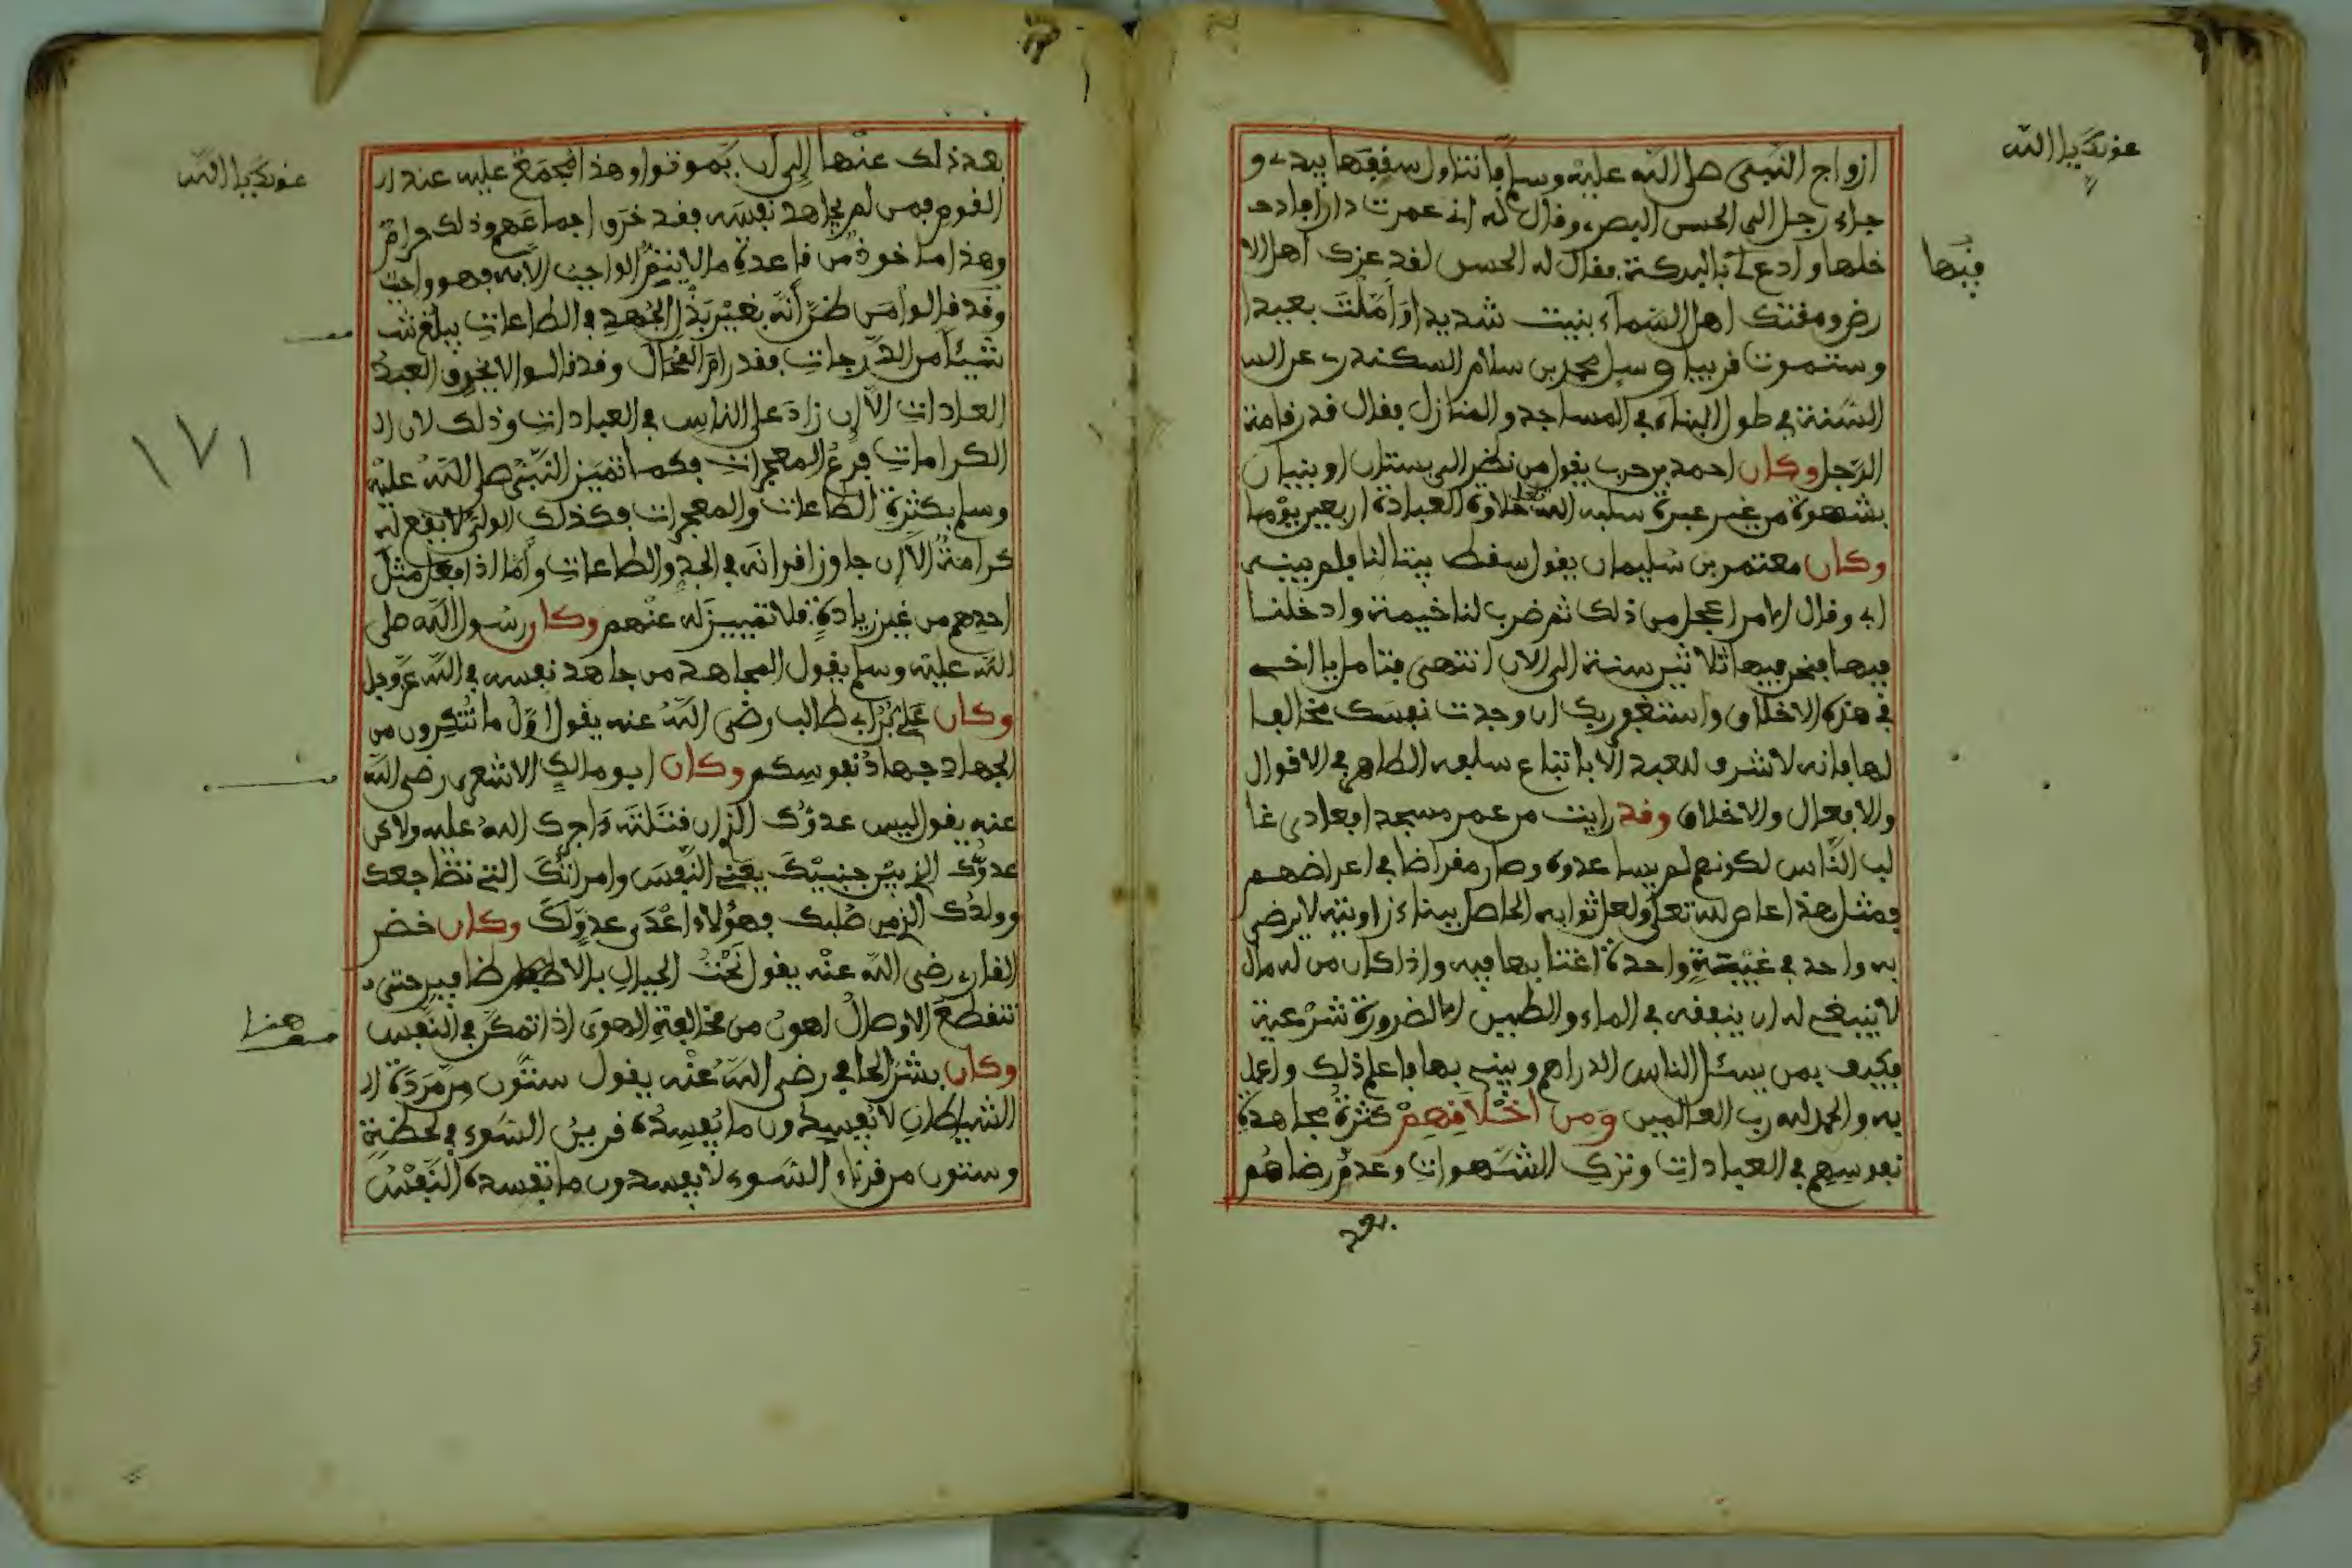 عونك يا الله
ازواج النبي صلى الله عليه وسلم فانتناول سقفها بيدي و
جاء رجل الى الحسن البصري وقال له اني عمرت دارا فادخ
خلها وادع لي بالبركة فقال له الحسن لقد عزك اهل الا
فيها
رض ومقتك اهل السماء بنيت شديدا واملت بعيدا
وستموت قريبا وسيل محمد بن سلام السكندري عن الس
السنة في طول البناء في المساجد والمنازل فقال قدر قامة
الرجل وكان احمد بن حرب يقول من نظر الى بستان او بنيان
بشهوة من غير عبرة سلبه الله تعلى حلاوة العبادة اربعين يوما
وكان معتمر بن سليمان يقول سقط بيتا لنا فلم يبنه
ابي وقال الامر اعجل من ذلك ثم ضرب لنا خيمة وادخلنا
فيها فنحن فيها ثلاثين سنة الى الان انتهى فتامل يا اخي
في هذه الاخلاق واستغفر ربك ان وجدت نفسك مخالفا
لها فانه لا شرف للعبد الا باتباع سلفه الطاهر في الاقوال
والافعال والاخلاق وقد رايت من عمر مسجدا فعادى غا
لب الناس لكونهم لم يساعدوه وصار مقراضا في اعراضهم
فمثل هذا عاص لله تعلى ولعل ثوابه الحاصل ببناء زاويته لا يرضى
به واحد في غيبة واحدة اغتابها فيه واذا كان من له مال
لا ينبغي له ان ينفقه في الماء والطين الا لضرورة شرعية
فكيف بمن يسئل الناس الدراهم ويبني بها فاعلم ذلك واعمل
به والحمد لله رب العالمين ومن اخلاقهم كثرة مجاهدة
نفوسهم في العبادات وترك الشهوات وعدم رضاهم
بعد
عونك يا الله
بعد ذلك عنها الى ان يموتوا وهذا مجمع عليه عند ال
القوم فمن لم يجاهد نفسه فقد خرق اجماعهم وذلك حرام
وهذا ماخوذ من قاعدة ما لا يتم الواجب الا به فهو واجب
وقد قالوا من ظن انه بغير بذل الجهد في الطاعات يبلغ ش
شيئا من الدرجات فقد رام المحال وقد قالوا لا يخرق العبد
العادات الا ان زاد على الناس في العبادات وذلك لان ال
١٧١
الكرامات فرع المعجزات فكما تميز النبي صلى الله عليه
وسلم بكثرة الطاعات والمعجزات فكذلك الولي لا يقع له
كرامة الا ان جاوز اقرانه في الجد والطاعات واما اذا فعل مثل
احدهم من غير زيادة فلا تمييز له عنهم وكان رسول الله صلى
الله عليه وسلم يقول المجاهد من جاهد نفسه في الله عز وجل
وكان علي بن ابي طالب رضي الله عنه يقول اول ما تنكرون من
الجهاد جهاد نفوسكم وكان ابو مالك الاشعري رضي الله
عنه يقول ليس عدوك الذي ان قتلته اجرك الله عليه ولاكن
عدوك الذي بين جنبيك يعني النفس وامراتك التي تضاجعك
وولدك الذي من صلبك فهؤلاء اعدى عدو لك وكان خضر
القاري رضي الله عنه يقول نحت الجبال بالاظافير حتى
تتقطع الاوصال اهون من مخالفة الهوى اذا تمكن في النفس
هنا
وكان بشر الحافي رضي الله عنه يقول ستون من مردة ال
الشياطان لا يفسدون ما يفسده قرين السوء في لحظة
وستون من قرناء السوء لا يفسدون ما تفسده النفس